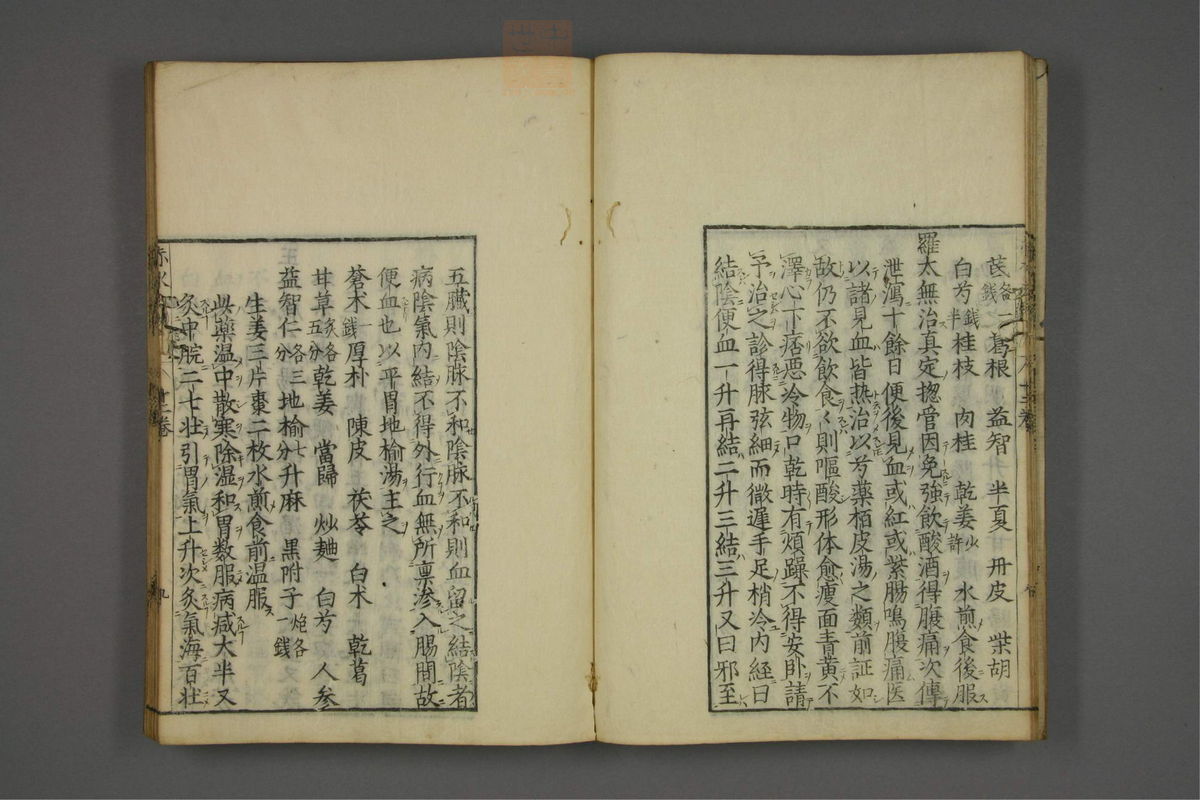 芪各一錢葛根 益智 半夏 甘 丹皮 柴胡
白芍錢半桂枝 肉桂 乾姜少許 水煎食後服
羅太無治真定揔管因免強飲酸酒得腹痛次傳
泄瀉十餘日便後見血或紅或紫腸鳴腹痛医
以諸見血皆热治以芍藥栢皮湯之類前証如
故仍不欲飲食〻則嘔酸形体愈瘦面青黄不
澤心下痞惡冷物口乾時有煩躁不得安卧請
予治之診得脉弦細而微遲手足梢冷内経曰
結陰便血一升再結二升三結三升又曰邪至
五臓則陰脉不和陰脉不和則血留之結陰者
病陰氣内結不得外行血無所禀滲入腸間故
便血也以平胃地榆湯主之
蒼术一錢厚朴 陳皮 茯苓 白术 乾葛
甘草炙各五分乾姜 當歸 炒麯 白芍 人参
益智仁各三分地榆七分升麻 黒附子炮各一錢
生姜三片棗二枚水煎食前温服
此藥温中散寒除湿和胃数服病减大半又
灸中脘二七壮引胃氣上升次灸氣海百壮